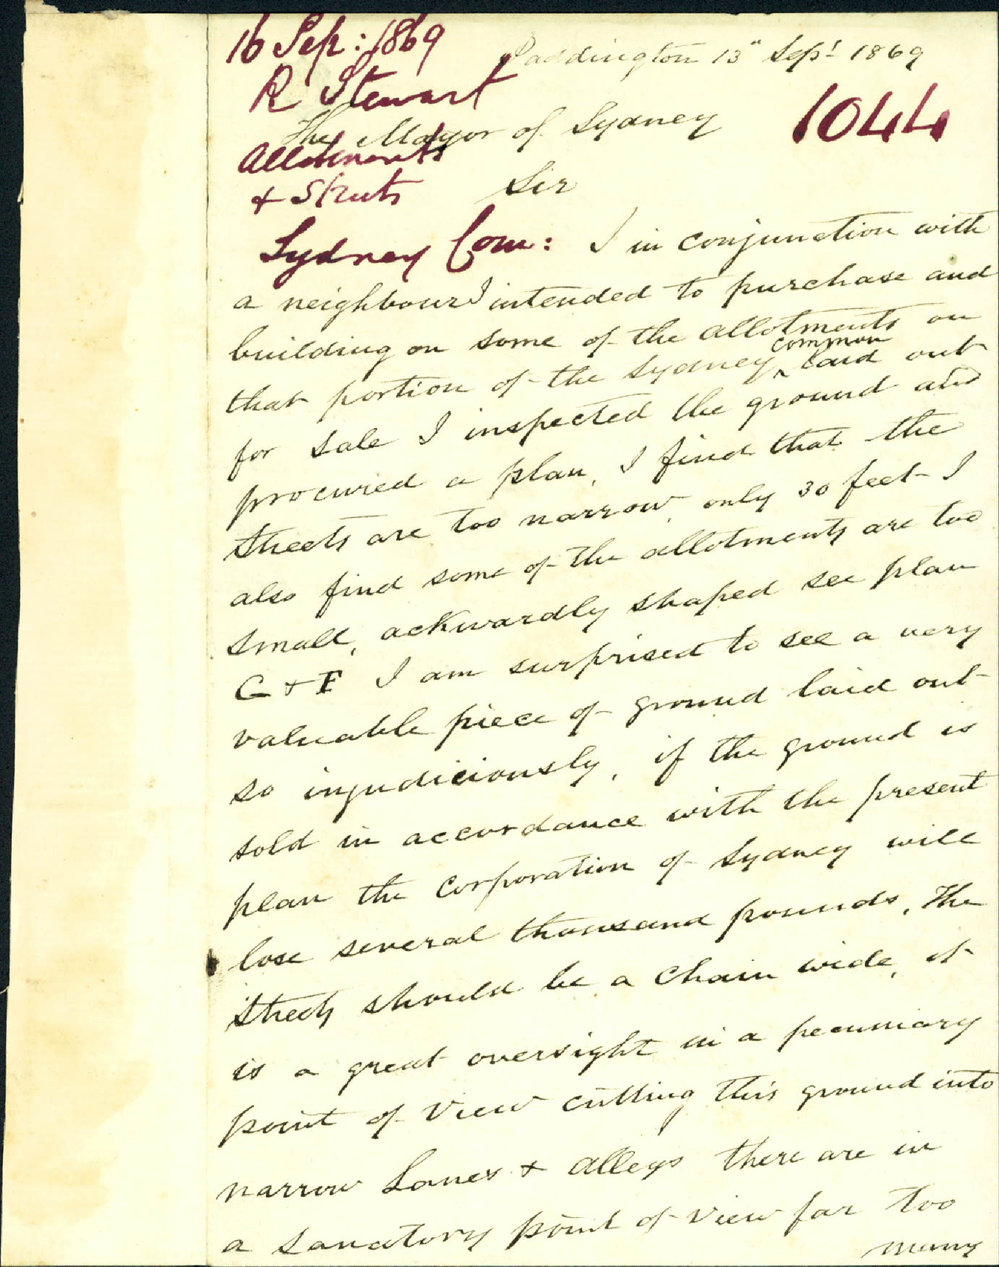 16 Sep: 1869
R Stewart
Allotments
& Streets
Sydney Com:
1044
Paddington 13" Sept 1869
The Mayor of Sydney
Sir
I in conjunction with
a neighbour I intended to purchase and
building on some of the allotments on
that portion of the Sydney common laid out
for sale I inspected the ground and
procured a plan, I find that the
Streets are too narrow only 30 feet I
also find some of the allotments are too
small, ackwardly shaped see plan
G & F I am surprised to see a very
valuable piece of ground laid out
so injudiciously, if the ground is
sold in accordance with the present
plan the corporation of Sydney will
lose several thousand pounds, The
Streets should be a chain wide, it
is a great oversight in a pecuniary
point of View cutting this ground into
narrow Lanes & Alleys there are in
a sanatory point of View far too
many